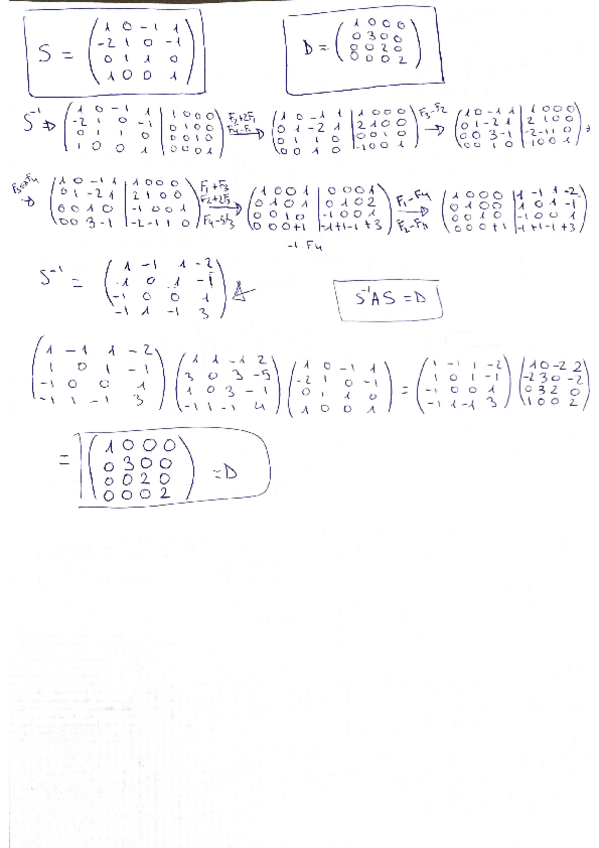 S = ( 1 0 -1 1 ; -2 1 0 -1 ; 0 1 1 0 ; 1 0 0 1 )   D = ( 1 0 0 0 ; 0 3 0 0 ; 0 0 2 0 ; 0 0 0 2 )
S⁻¹ ⇒ ( 1 0 -1 1 | 1 0 0 0 ; -2 1 0 -1 | 0 1 0 0 ; 0 1 1 0 | 0 0 1 0 ; 1 0 0 1 | 0 0 0 1 ) F2+2F1 F4-F1 → ( 1 0 -1 1 | 1 0 0 0 ; 0 1 -2 1 | 2 1 0 0 ; 0 1 1 0 | 0 0 1 0 ; 0 0 1 0 | -1 0 0 1 ) F3-F2 → ( 1 0 -1 1 | 1 0 0 0 ; 0 1 -2 1 | 2 1 0 0 ; 0 0 3 -1 | -2 -1 1 0 ; 0 0 1 0 | -1 0 0 1 ) →
→ ( 1 0 -1 1 | 1 0 0 0 ; 0 1 -2 1 | 2 1 0 0 ; 0 0 1 0 | -1 0 0 1 ; 0 0 3 -1 | -2 -1 1 0 ) F1+F3 F2+2F3 → ( 1 0 0 1 | 0 0 0 1 ; 0 1 0 1 | 0 1 0 2 ; 0 0 1 0 | -1 0 0 1 ; 0 0 0 +1 | -1 +1 -1 +3 ) F1-F4 F2-F4 → ( 1 0 0 0 | 1 -1 1 -2 ; 0 1 0 0 | 1 0 1 -1 ; 0 0 1 0 | -1 0 0 1 ; 0 0 0 +1 | -1 +1 -1 +3 )
-1 F4
S⁻¹ = ( 1 -1 1 -2 ; 1 0 1 -1 ; -1 0 0 1 ; -1 1 -1 3 )   S⁻¹AS = D
( 1 -1 1 -2 ; 1 0 1 -1 ; -1 0 0 1 ; -1 1 -1 3 ) ( 1 1 -1 2 ; 3 0 3 -5 ; 1 0 3 -1 ; -1 1 -1 4 ) ( 1 0 -1 1 ; -2 1 0 -1 ; 0 1 1 0 ; 1 0 0 1 ) = ( 1 -1 1 -2 ; 1 0 1 -1 ; -1 0 0 1 ; -1 1 -1 3 ) ( 1 0 -2 2 ; -2 3 0 -2 ; 0 3 2 0 ; 1 0 0 2 )
= ( 1 0 0 0 ; 0 3 0 0 ; 0 0 2 0 ; 0 0 0 2 ) = D